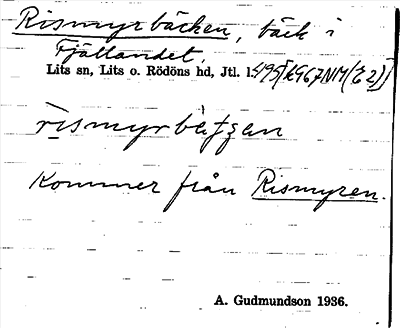 Rismyrbäcken, bäck i
Fjällandet.
Lits sn, Lits o. Rödöns hd, Jtl. l.
rismyrbätʃen
Kommer från Rismyren.
A. Gudmundson 1936.